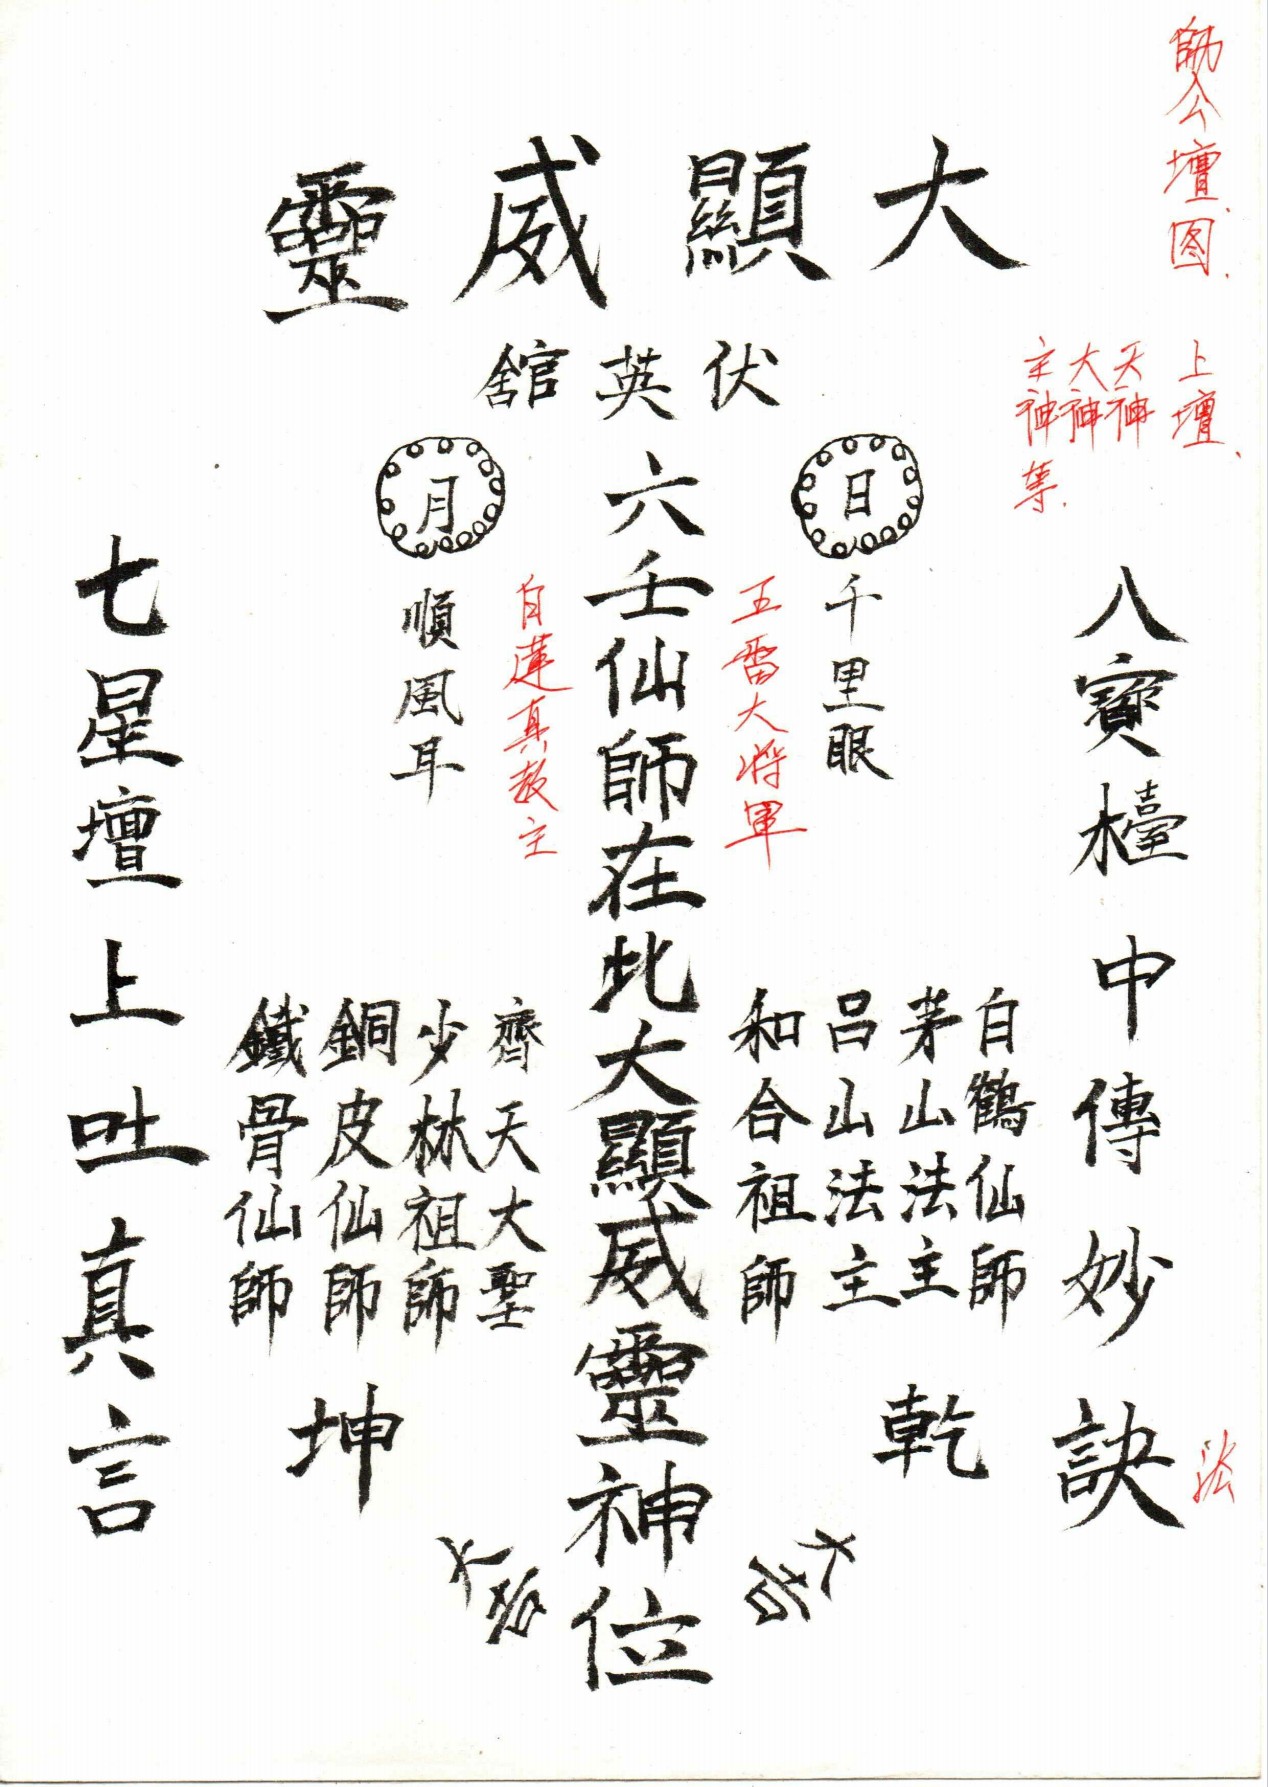 師公壇图
上壇
天神
大神
主神等
大顯威靈
伏英舘
日
月
千里眼
順風耳
五雷大将軍
白蓮真教主
六壬仙師在此大顯威靈神位
八寳檯中傳妙訣
法
七星壇上吐真言
白鶴仙師
茅山法主
吕山法主
和合祖師
齊天大聖
少林祖師
銅皮仙師
鐵骨仙師
乾
坤